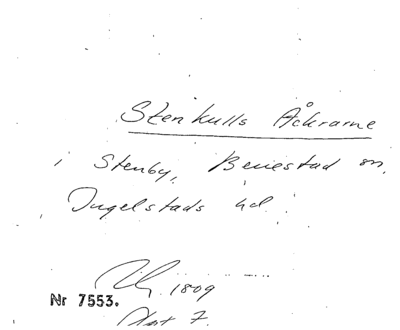 Stenkulls Åkrarne
i Stenby, Benestad sn,
Ingelstads hd.
1809
Nr 7553.
7.